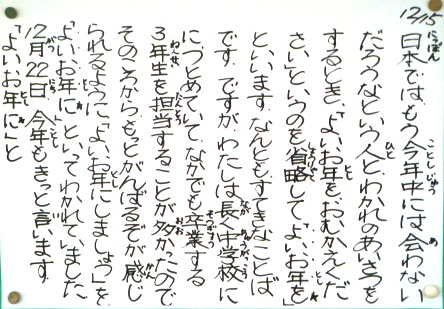 12/15 日本ではもう今年中には会わない
だろうなという人とわかれのあいさつを
するとき、「よいお年をおむかえくだ
さい」というのを省略して「よいお年を」
といいます。なんともすてきなことば
です。ですがわたしは長く中学校に
につとめていて、なかでも卒業する
3年生を担当することが多かったので
そのころからもっとがんばるぞが感じ
られるように「よいお年にしましょう」を
「よいお年に」といってわかれていました
12月22日、今年もきっと言います。
「よいお年に」と